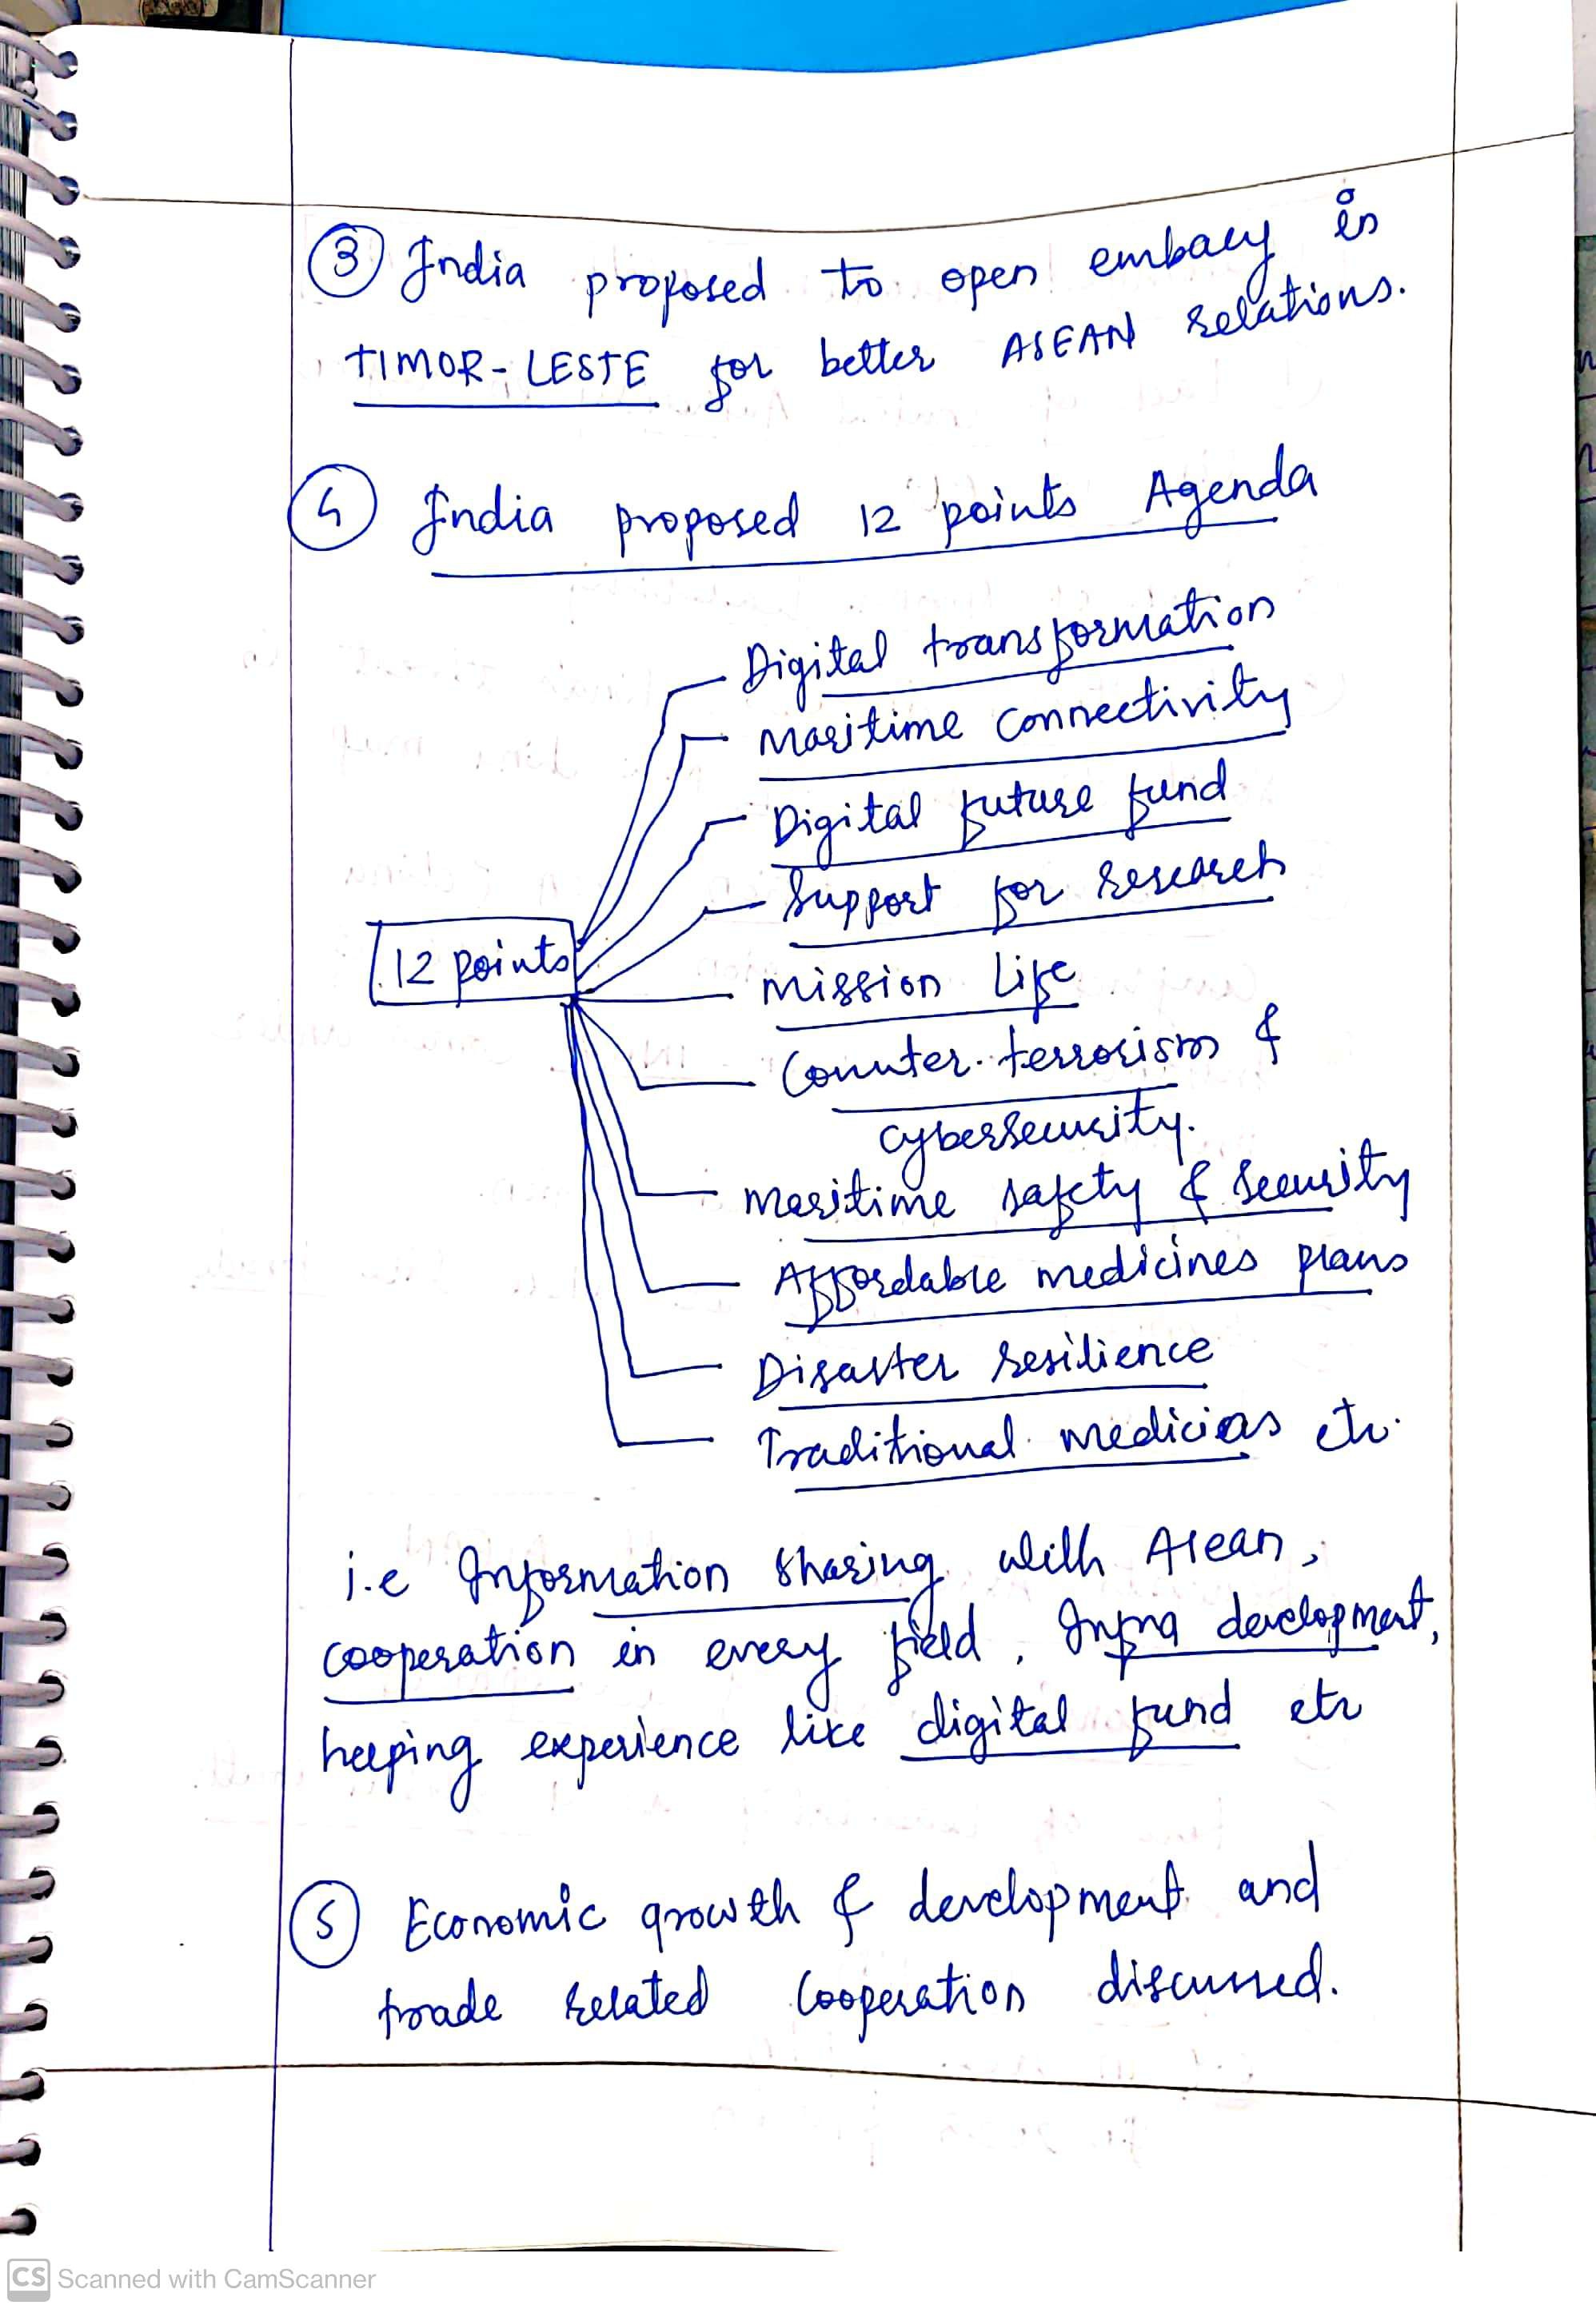 3 India proposed to open embacy in
TIMOR-LESTE for better ASEAN relations.
4 India proposed 12 points Agenda
Digital transformation
Maritime connectivity
Digital future fund
Support for research
12 points
Mission Life
Counter-terrorism &
cybersecurity.
Maritime safety & security
Affordable medicines plans
Disaster resilience
Traditional medicins etc.
i.e Information sharing with Asean,
cooperation in every field, Infra development,
heeping experience like digital fund etc
5 Economic growth & development and
trade related cooperation discussed.
CS Scanned with CamScanner